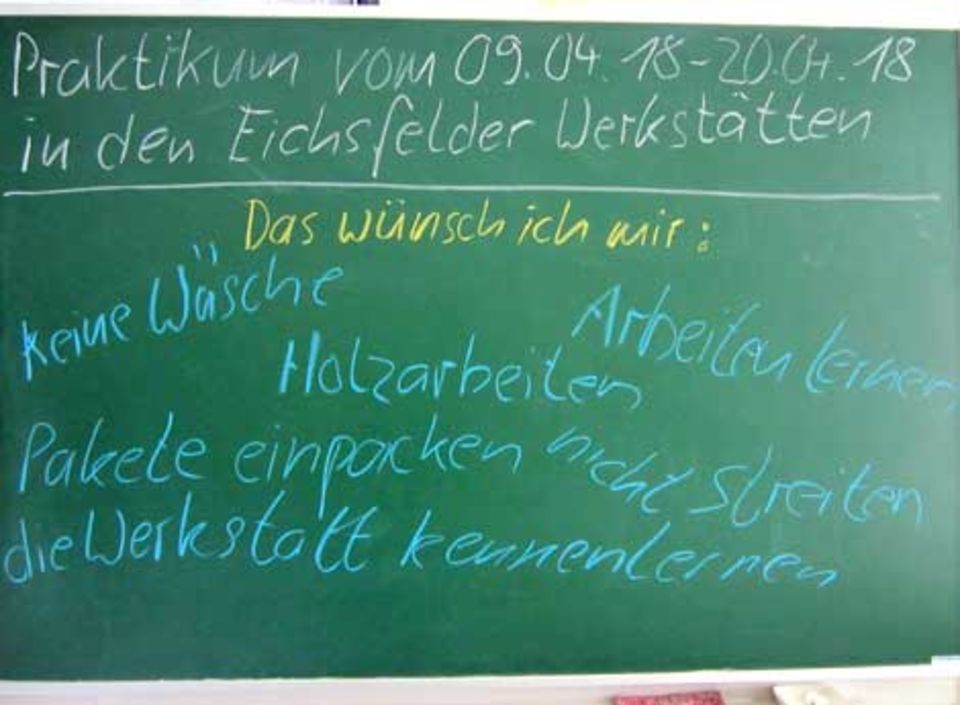 Praktikum vom 09.04.18-20.04.18
in den Eichsfelder Werkstätten
Das wünsch ich mir:
keine Wäsche
Arbeiten lernen
Holzarbeiten
Pakete einpacken
nicht Streiten
die Werkstatt kennenlernen